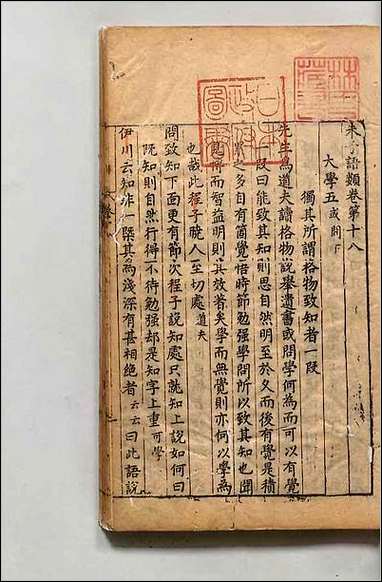 朱子語類卷第十八
大學五或問下
獨其所謂格物致知者一段
先生為道夫讀格物說舉遺書或問學何為而可以有覺
一段曰能致其知則思自然明至於久而後有覺是積
累之多自有箇覺悟時節勉強學問所以致其知也聞
見博而智益明則其效著矣學而無覺則亦何以學為
也哉此程子曉人至切處道夫
問致知下面更有節次程子說知處只就知上說如何曰
既知則自然行得不待勉強却是知字上重可學
伊川云知非一槩其為淺深有甚相絕者云云曰此語說